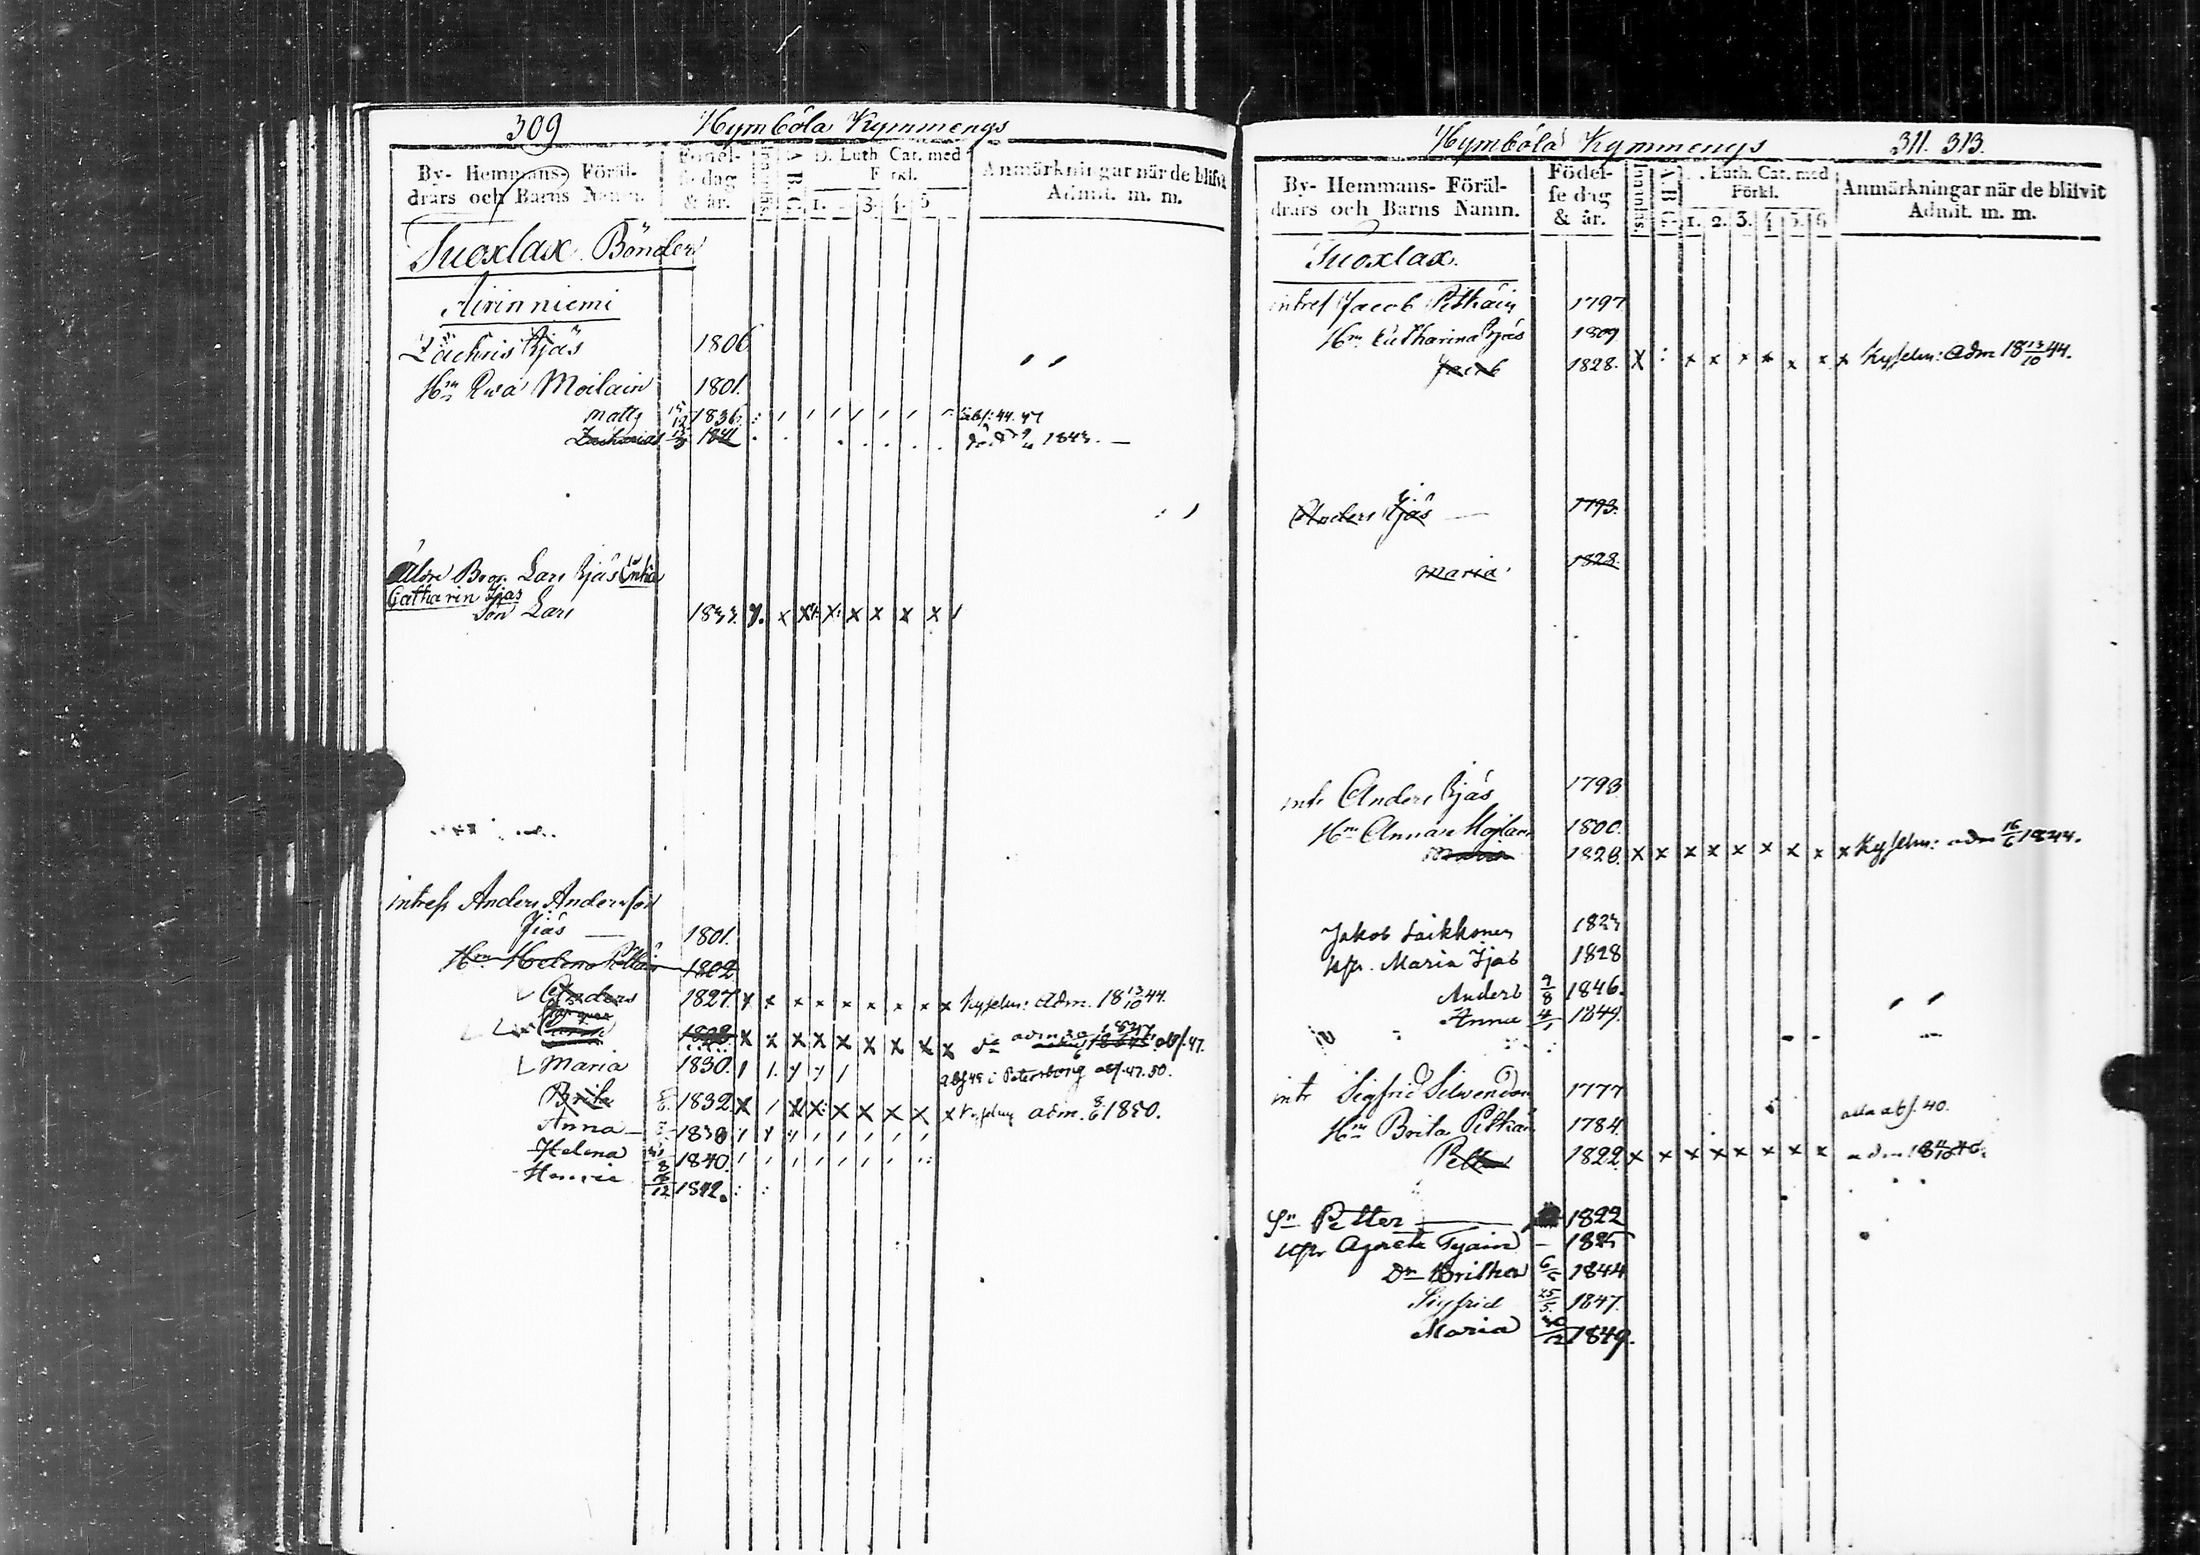 309 Hymböla Kymmengs
By- Hemmans- Föräl-
drars och Barns Namn.
Födel-
se dag
& år.
A. B. C.
D. Luth. Cat. med
Förkl.
1. 3. 4. 5
Anmärkningar när de blifvit
Admit. m. m.
Suoxlax Bönder
Airinniemi
Zachris Ijäs 1806
Hu Ewa Moilain 1801.
Matts 1836 abs: 44. 47
Zacharias 1841 1843. —
Äldre Bror Lars Ijäs Enka
Catharin Ijas
Son Lars 1833.
intress Anders Andersson
Ijäs — 1801.
Hu Helena 1802
Anders 1827. Kyselm: Adm. 18 13/10 44.
1828. abs. 47.
Maria 1830. abs 45 i Petersborg abs. 47. 50.
Brita 1832. adm. 8/6 1850.
Anna — 1838
Helena 1840.
Henric 16/12 1842.
Hymböla Kymmengs 311. 313.
By- Hemmans- Föräl-
drars och Barns Namn.
Födel-
se dag
& år.
Innanläs
A. B. C.
Luth. Cat. med
Förkl.
1. 2. 3. 4 5. 6
Anmärkningar när de blifvit
Admit. m. m.
Suoxlax.
intres Jacob Pitkäin 1797
Hu Catharina Ijäs 1809
Jacob 1828. Kyselm: Adm 18 13/10 44.
Anders Ijäs — 1793.
Maria 1828.
intr Anders Ijäs 1793
Hu Anna Mojlain 1800.
Maria 1828. Kyselm: adm 16/6 1844.
Jakob Laikkonen 1823
Maria Ijas 1828
Anders 9/8 1846.
Anna 4/1 1849.
intr Sigfrid Silvendoin 1777
alla abs. 40.
Hu Brita Pitkäi 1784.
Petter 1822
Sn Petter — 1822
Agneta — 1825
Dr Britha 1844
Sigfrid 25/5 1847.
Maria 30/12 1849.